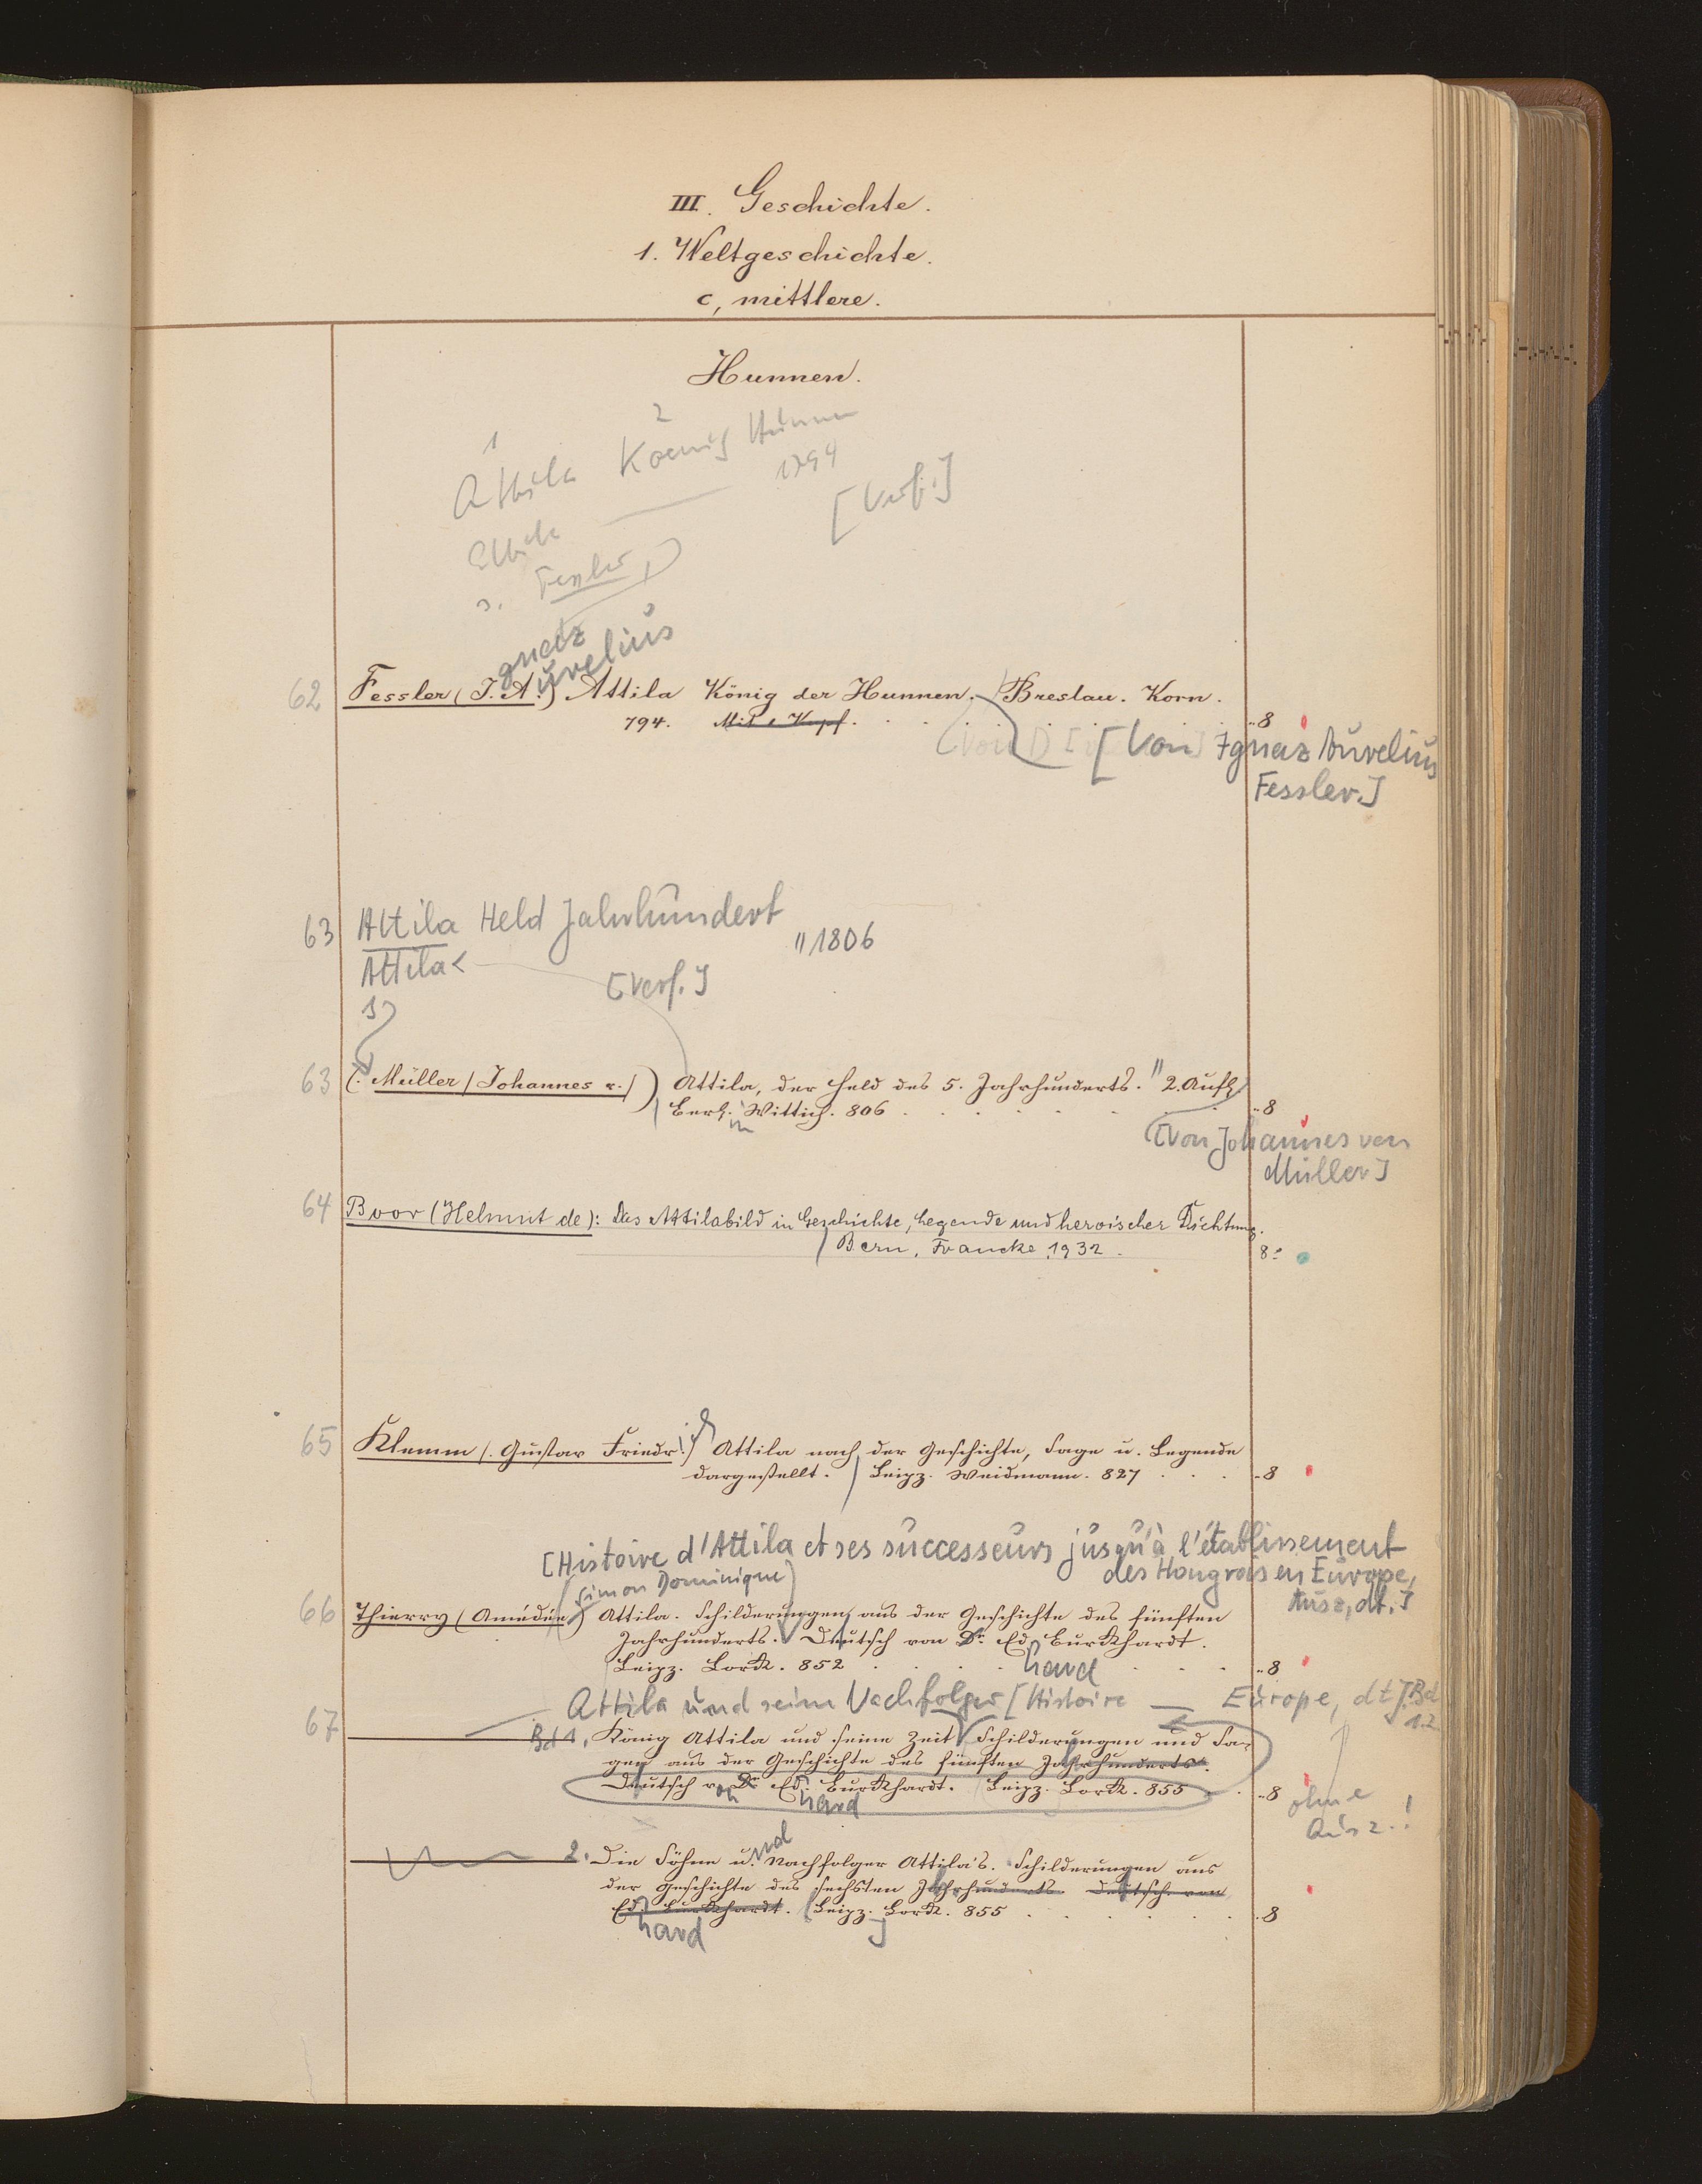 III. Geschichte.
1. Weltgeschichte.
c, mittlere.
Hunnen.
1 2
Attila Koenig Hunnen
1794
[Verf.]
s. Fessler,
gnaz
urelius
62 Fessler (I. A.) Attila König der Hunnen. Breslau. Korn.
794. Mit 1 Kupf. 8
[Von Ignaz Aurelius
Fessler.]
63 Attila Held Jahrhundert
" 1806
Attila <
[Verf.]
63 (. Müller / Johannes v. /) Attila, der Held des 5. Jahrhunderts. " 2. Aufl.
Berl. Wittich. 806 8
[Von Johannes von
Müller]
64 Boor (Helmut de): Das Attilabild in Geschichte, Legende und heroischer Dichtung.
Bern, Francke, 1932. 8°
65 Klemm /. Gustav Friedr. / Attila nach der Geschichte, Sage u. Legende
dargestellt. Leipz. Weidmann. 827 8
[Histoire d'Attila et ses successeurs jusqu'à l'établissement
des Hongrois en Europe,
Ausz., dt.]
(Simon Dominique)
66 Thierry (Amédée) Attila. Schilderungen aus der Geschichte des fünften
Jahrhunderts. Deutsch von Dr. Ed. Burkhardt.
hard
Leipz. Lorck. 852 8
Attila und seine Nachfolger [Histoire — Europe, dt.] Bd
1.2
67 Bd 1, König Attila und seine Zeit. Schilderungen und Sa-
gen aus der Geschichte des fünften Jahrhunderts.
Deutsch von Dr. Ed. Burkhardt. Leipz. Lorck. 855 8
hard
ohne
Ausz.!
2. Die Söhne u. Nachfolger Attila's. Schilderungen aus
der Geschichte des sechsten Jahrhunderts. Deutsch von
Ed. Burkhardt. Leipz. Lorck. 855 8
hard